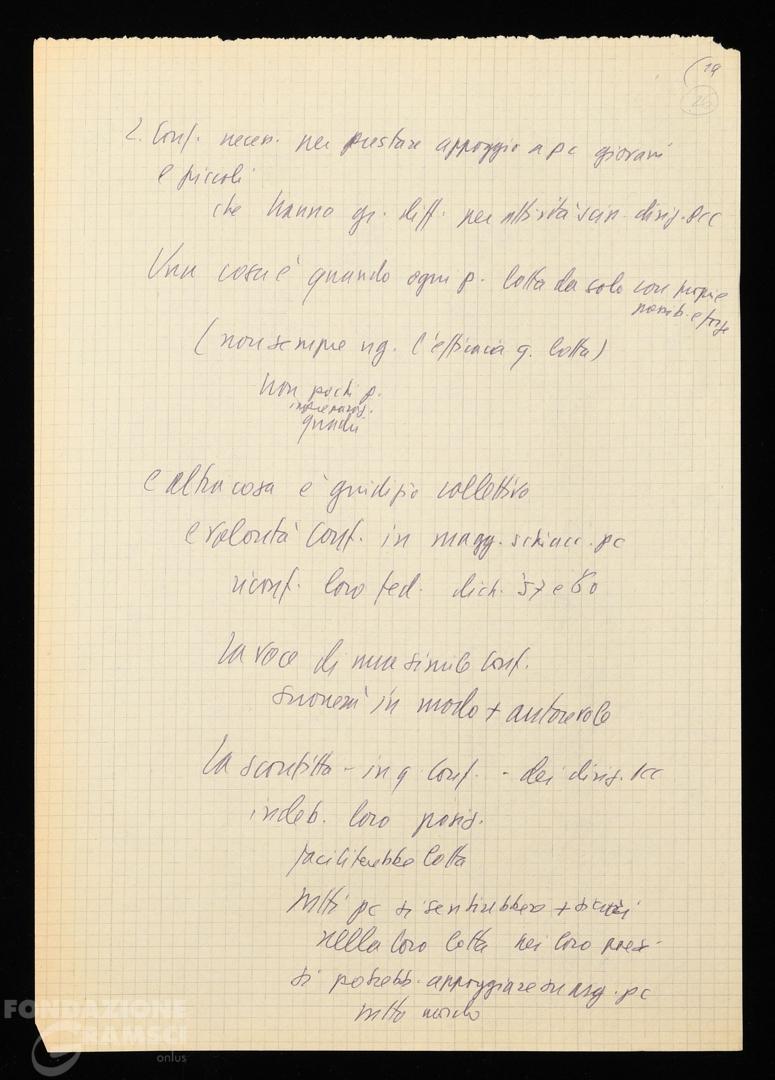 19
26
2. Conf. neces. per prestare appoggio a pc giovani
e piccoli
che hanno gr. diff. per attività scis. dirig. pcc
Una cosa è quando ogni p. lotta da solo con proprie
possib. e forze
(non sempre ragg. l'efficacia q. lotta)
non pochi p.
quadri
e altra cosa è giudizio collettivo
e volontà conf. in magg. schiacc. pc
riconf. loro fed. dich. '57 e 60
La voce di una simile conf.
suonerà in modo + autorevole
La sconfitta - in q. conf. - dei dirig. pcc
indeb. loro posiz.
faciliterebbe lotta
tutti pc si sentirebbero + sicuri
nella loro lotta nei loro paesi
si potrebb. appoggiare su magg. pc
tutto mondo
FONDAZIONE
GRAMSCI
onlus